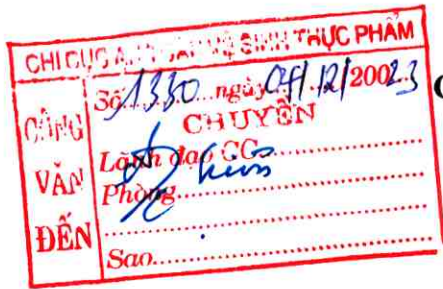 CHI CỤC AN TOÀN VỆ SINH THỰC PHẨM
CÔNG VĂN ĐẾN
Số 1330 ngày 04/12/20023
CHUYỂN
Lãnh đạo CC
Phòng
Sao